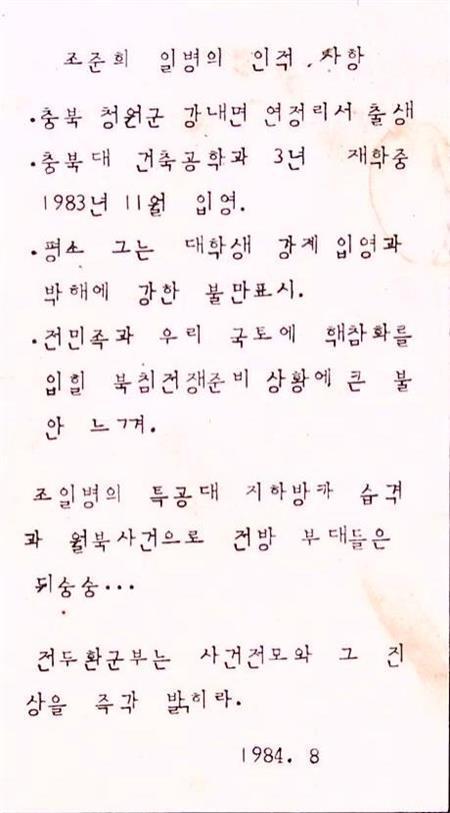 조준희 일병의 인적 사항
·충북 청원군 강내면 연정리서 출생
·충북대 건축공학과 3년 재학중
1983년 11월 입영.
·평소 그는 대학생 강제 입영과
박해에 강한 불만표시.
·전민족과 우리 국토에 핵참화를
입힐 북침전쟁준비 상황에 큰 불
안 느껴.
조일병의 특공대 지하방카 습격
과 월북사건으로 전방 부대들은
뒤숭숭...
전두환군부는 사건전모와 그 진
상을 즉각 밝히라.
1984. 8